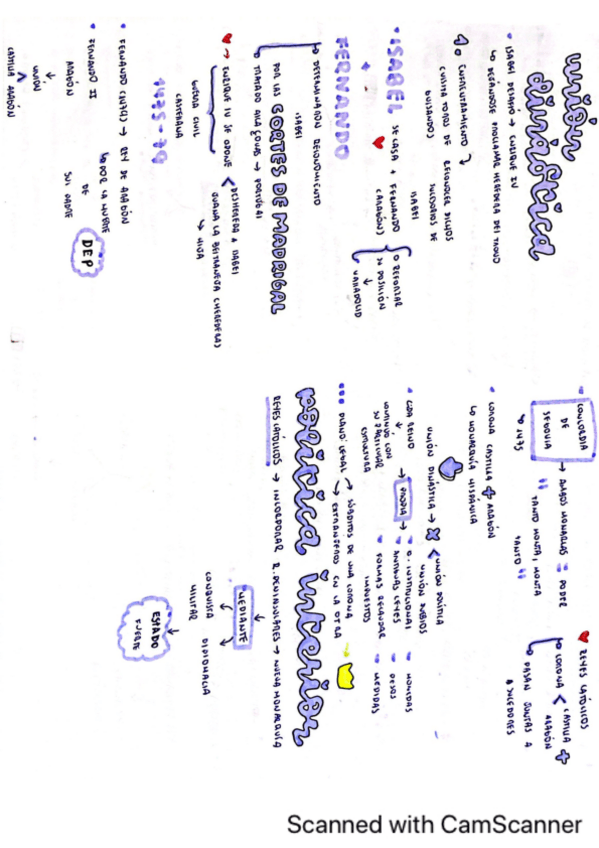 unión
dinástica
• ISABEL DESAFIÓ → ENRIQUE IV
↳ DEJÁNDOSE PROCLAMAR HEREDERA DEL TRONO
1º ENFRENTAMIENTO
CUESTA TORO DE
GUISANDO)
ISABEL
• ISABEL SE CASA + FERNANDO
(ARAGÓN)
REFORZAR
SU POSICIÓN
VALLADOLID
FERNANDO
↳ DESTERMINADON
ISABEL
POR LAS CORTES DE MADRIGAL
↳ TRATADO → PORTUGAL
→ ENRIQUE IV SE OPONE <
DESHEREDA A ISABEL
JUANA LA BELTRANEJA (HEREDERA)
↳ HIJA
GUERRA CIVIL
CASTELLANA
1475-79
• FERNANDO (1479) → REY DE ARAGÓN
↳ POR LA MUERTE
DE
SU PADRE
DEP
• FERNANDO II
ARAGÓN
UNIÓN
CASTILLA ARAGÓN
• CONCORDIA
DE
SEGOVIA
↳ 1475
→ AMBOS MONARCAS = PODER
" TANTO MONTA, MONTA
TANTO "
REYES CATÓLICOS
↳ CORONA < CASTILLA +
ARAGÓN
↳ PASAN JUNTAS A
SUCESORES
• CORONA CASTILLA + ARAGÓN
↳ MONARQUÍA HISPÁNICA
UNIÓN DINÁSTICA → X < UNIÓN POLÍTICA
UNIÓN REINOS
• CADA REINO
CONTINUÓ CON
SU PARTICULAR
→ MANTENÍA →
• O. INSTITUCIONAL
• ANTIGUAS LEYES
• FORMAS RECAUDAR
IMPUESTOS
• MONEDAS
• PESOS
• MEDIDAS
SÚBDITOS DE UNA CORONA
→ EXTRANJEROS EN LA OTRA
política interior
REYES CATÓLICOS → INCORPORAR R. PENINSULARES → NUEVA MONARQUÍA
MEDIANTE
CONQUISTA
MILITAR
DIPLOMACIA
ESTADO
FUERTE
Scanned with CamScanner